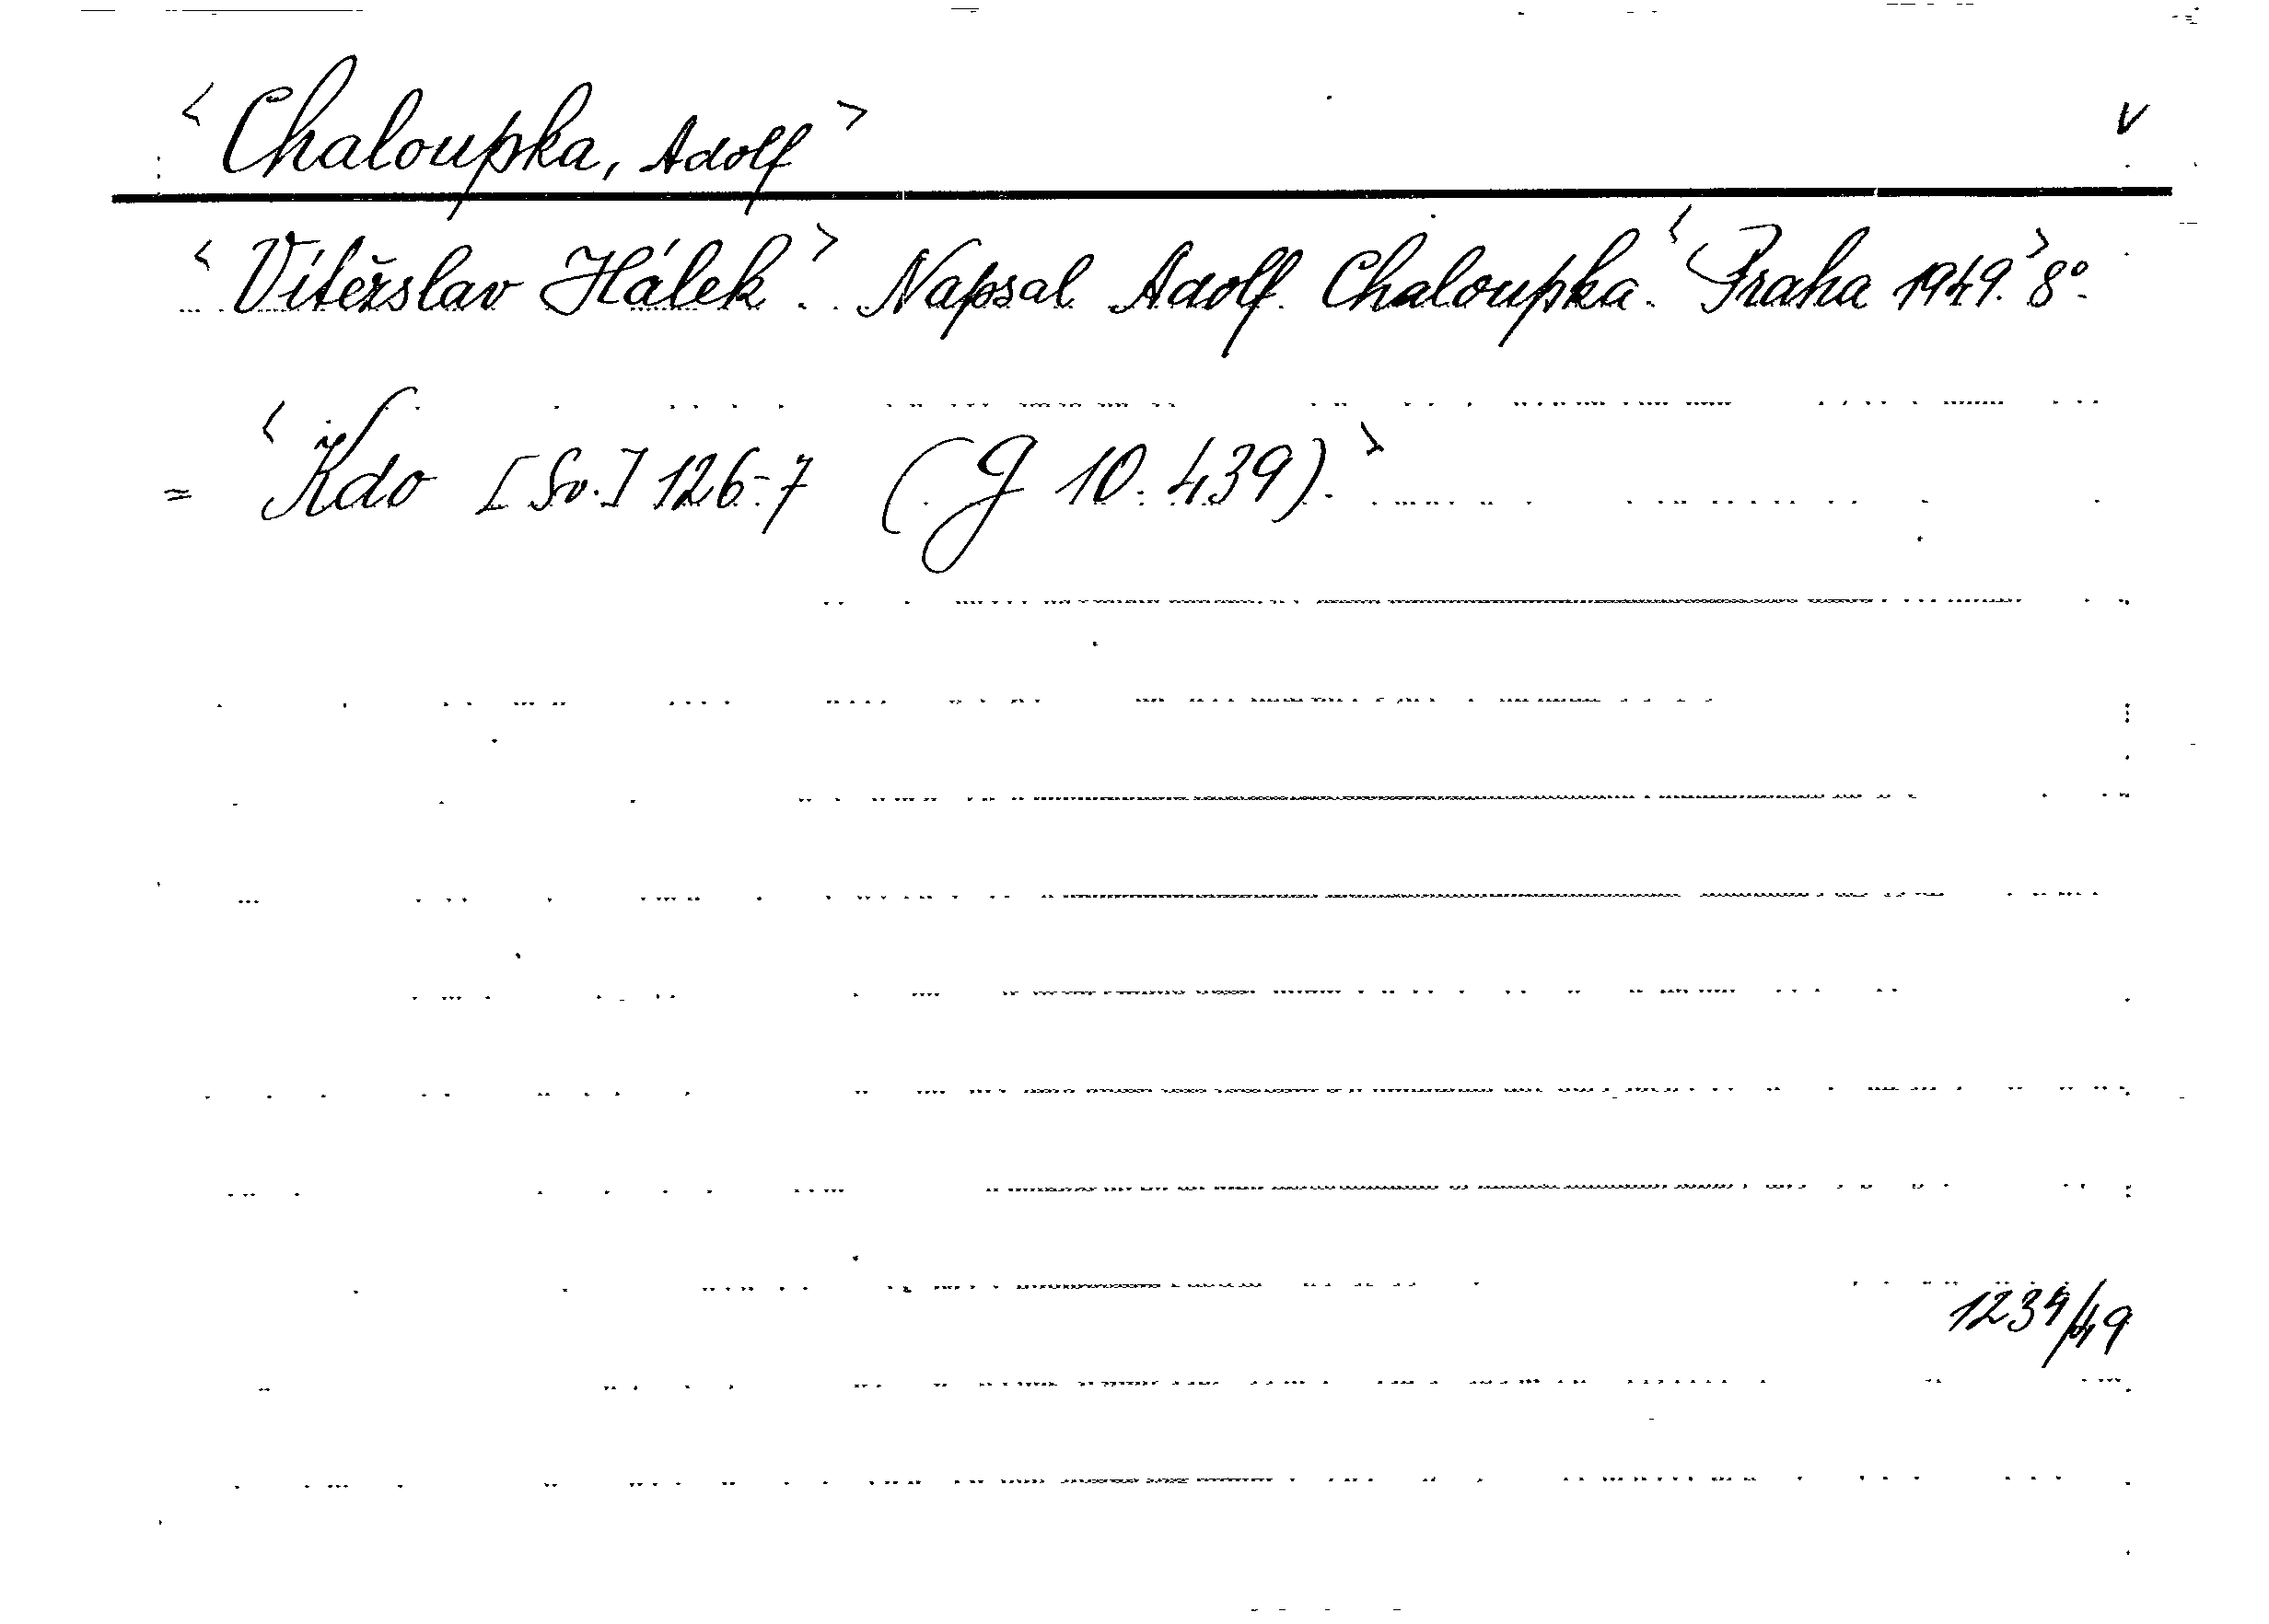 <Chaloupka, Adolf> V
<Vítěžslav Hálek>. Napsal Adolf Chaloupka. <Praha 1949.> 8°.
= <Kdo [Sv.] 126-7 (G 10.439).>
1234/49